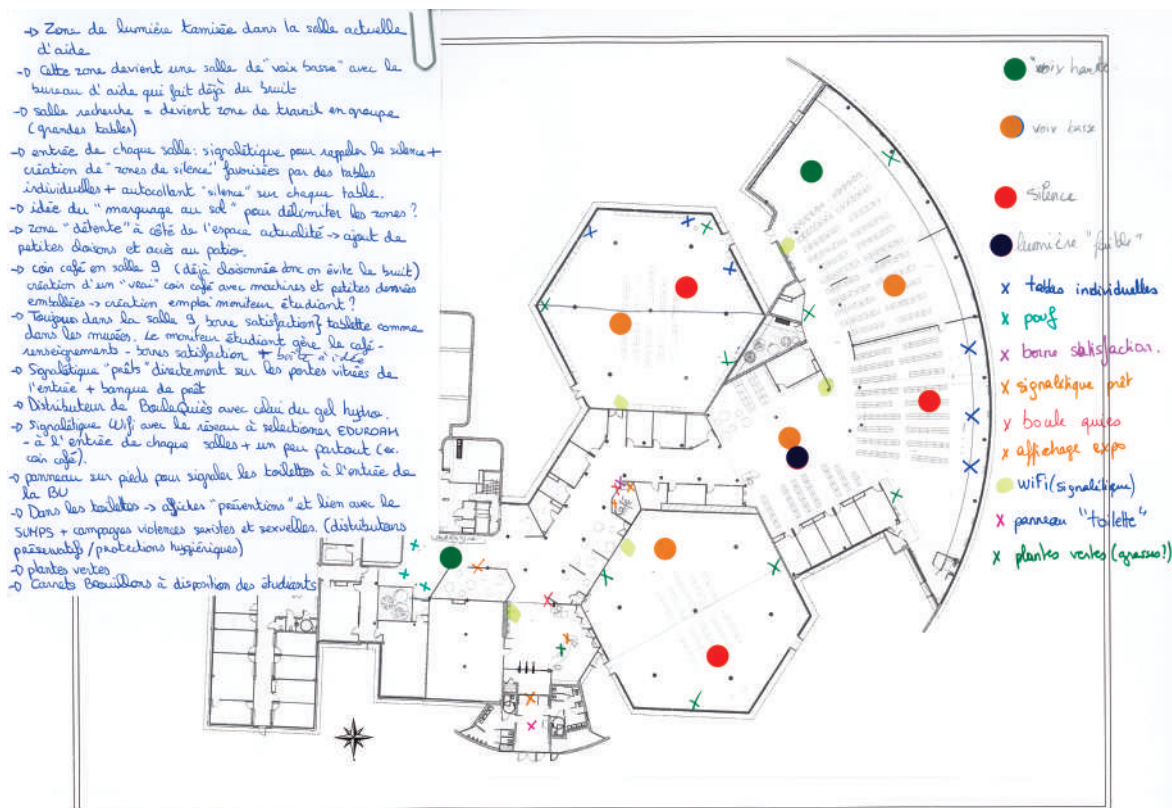 -> Zone de lumière tamisée dans la salle actuelle
d'aide
-> Cette zone devient une salle de "voix basse" avec le
bureau d'aide qui fait déjà du bruit
-> salle recherche = devient zone de travail en groupe
(grandes tables)
-> entrée de chaque salle: signalétique pour rappeler le silence +
création de "zones de silence" favorisées par des tables
individuelles + autocollant "silence" sur chaque table.
-> idée du "marquage au sol" pour délimiter les zones ?
-> zone "détente" à côté de l'espace actualité -> ajout de
petites cloisons et accès au patio.
-> coin café en salle 9 (déjà cloisonnée donc on évite le bruit)
création d'un "vrai" coin café avec machines et petites denrées
emballées -> création emploi moniteur étudiant ?
-> Toujours dans la salle 9 borne satisfaction} tablette comme
dans les musées. Le moniteur étudiant gère le café -
renseignements - bornes satisfaction + boîte à idée
-> Signalétique "prêts" directement sur les portes vitrées de
l'entrée + banque de prêt
-> Distributeur de Boule Quiès avec celui du gel hydro.
-> signalétique Wifi avec le réseau à selectioner EDUROAM
- à l'entrée de chaque salles + un peu partout (ex.
coin café).
-> panneau sur pieds pour signaler les toilettes à l'entrée de
la BU
-> Dans les toilettes -> affiches "préventions" et lien avec le
SUMPS + campagnes violences sexistes et sexuelles. (distributeurs
préservatifs / protections hygiéniques)
-> plantes vertes
-> Carnets Brouillons à disposition des étudiants
"voix haute"
voix basse
silence
lumière "faible"
x tables individuelles
x pouf
x borne satisfaction.
x signalétique prêt
x boule quies
x affichage expos
wiFi (signalétique)
x panneau "toilette"
x plantes vertes (grasses!)